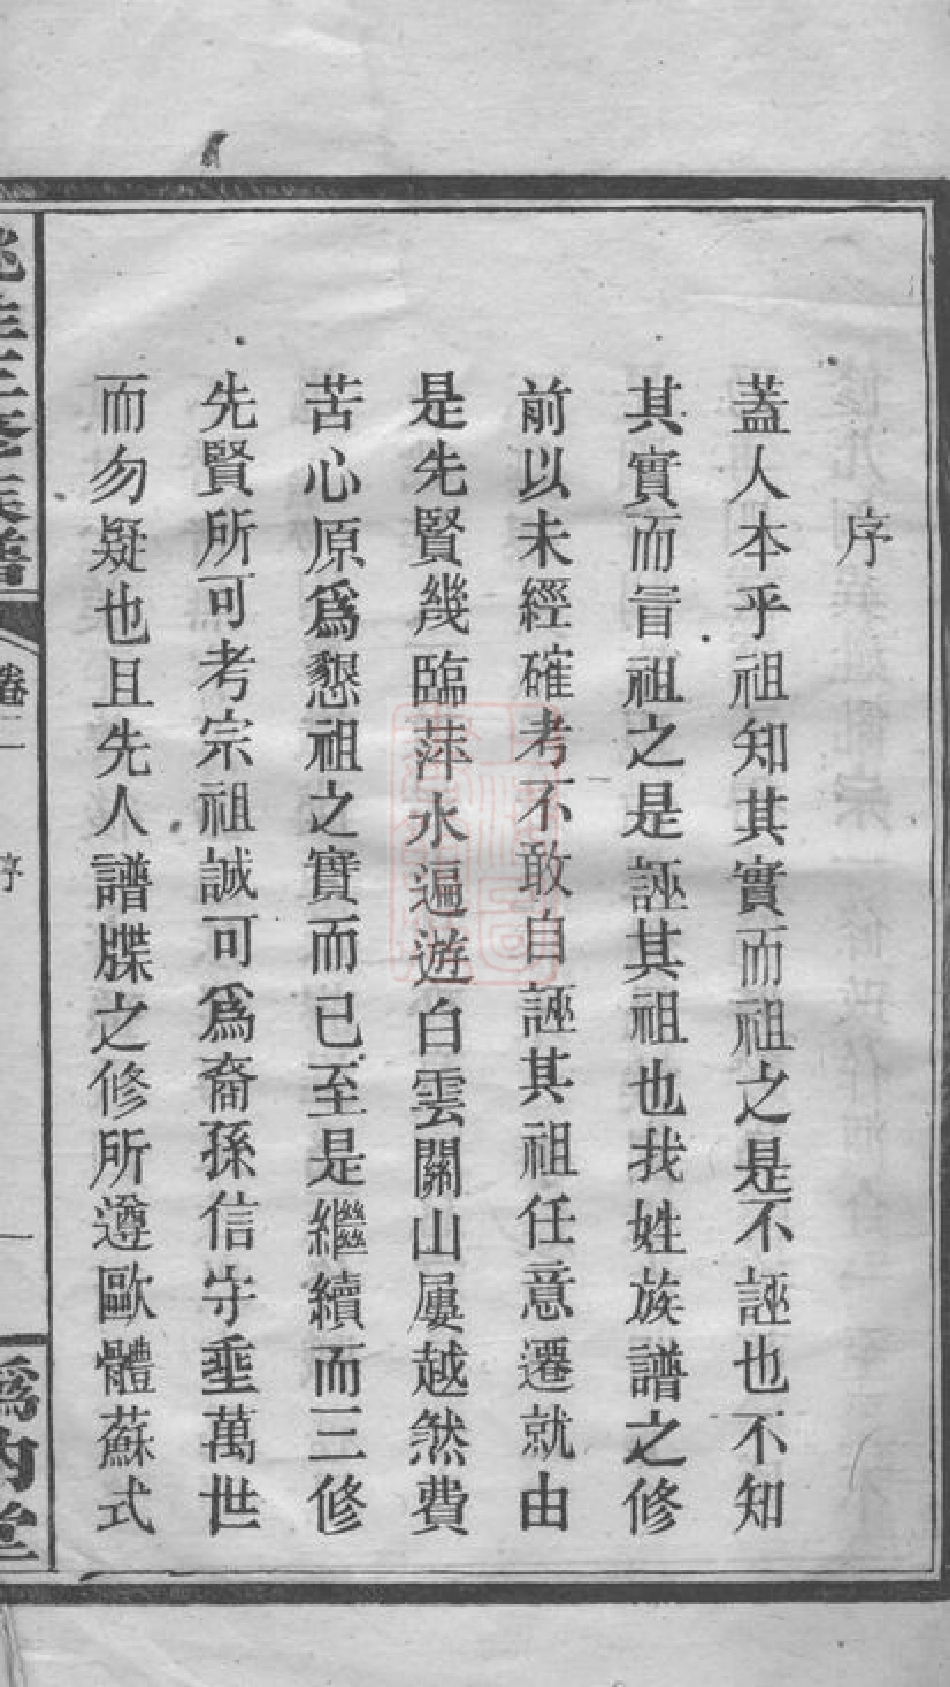 序
蓋人本乎祖知其實而祖之是不誣也不知
其實而冒祖之是誣其祖也我姓族譜之修
前以未經確考不敢自誣其祖任意遷就由
是先賢幾臨萍水遍遊白雲關山屢越然費
苦心原爲懇祖之實而已至是繼續而三修
先賢所可考宗祖誠可爲裔孫信守垂萬世
而勿疑也且先人譜牒之修所遵歐體蘇式
姓三修族譜
卷一
序
一
爲內堂